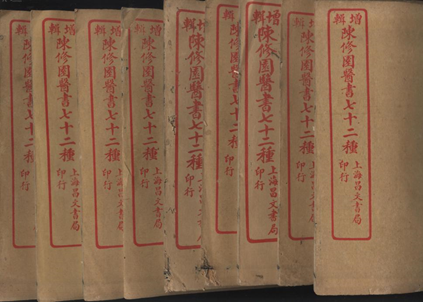 增輯
陳修園醫書七十二種
上海昌文書局
印行
輯
陳修園醫書七十二種
上海昌文書局
印行
增輯
陳修園醫書七十二種
上海昌文書局
印行
輯
陳修園醫書七十二種
印行
增輯
陳修園醫書七十二種
海昌文書局
印行
增輯
陳修園醫書七十二種
上海昌文書局
印行
輯
陳修園醫書七十二種
上海昌文書局
印行
增輯
陳修園醫書七十二種
上海昌文書局
印行
輯
陳修園醫書七十二種
印行